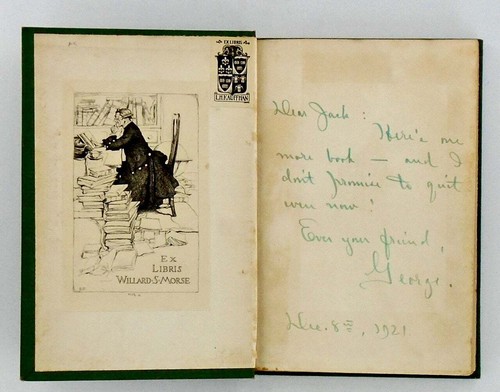 EX LIBRIS
L.H. KAUFFMAN
EX
LIBRIS
WILLARD·S·MORSE
Dear Jack:
Here's one
more book — and I
don't promise to quit
even now!
Ever your friend,
George.
Dec. 8th, 1921